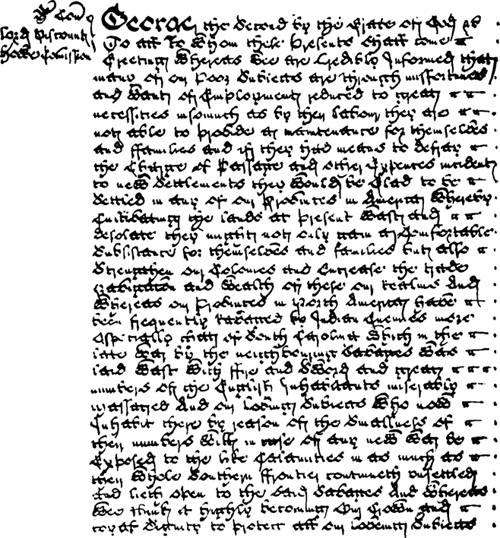 Lord Viscount
George the Second by the Grace of God &c
To all To Whom these Presents shall come
Greeting Whereas Wee are Credibly Informed that
many of our Poor Subjects are through misfortunes
and Want of Employment reduced to great
necessities insomuch as by their labour they are
not able to provide a maintenance for themselves
and ffamilies and if they had means to defray
the Charge of Passage and other Expences incident
to new Settlements they Would be Glad to be
Settled in any of our Provinces in America Whereby
Cultivating the lands at present Wast and
desolate they might not only gain a Comfortable
Subsistance for themselves and families but also
Strengthen our Colonies and Encrease the trade
Navigation and Wealth of these our realms And
Whereas our Provinces in North America have
been frequently ravaged by Indian Enemies more
Especially that of South Carolina Which in the
late War by the neighbouring Savages Was
laid Wast With ffire and Sword and great
numbers of the English Inhabitants miserably
massacred And our loving Subjects Who now
Inhabit there by reason of the Smallness of
their numbers Will in case of any new War be
Exposed to the like Calamities in as much as
their Whole Southern ffrontier continueth unsettled
And lieth open to the said Savages And Whereas
Wee think it highly becoming Our Crown and
royal Dignity to protect all our loveing Subjects